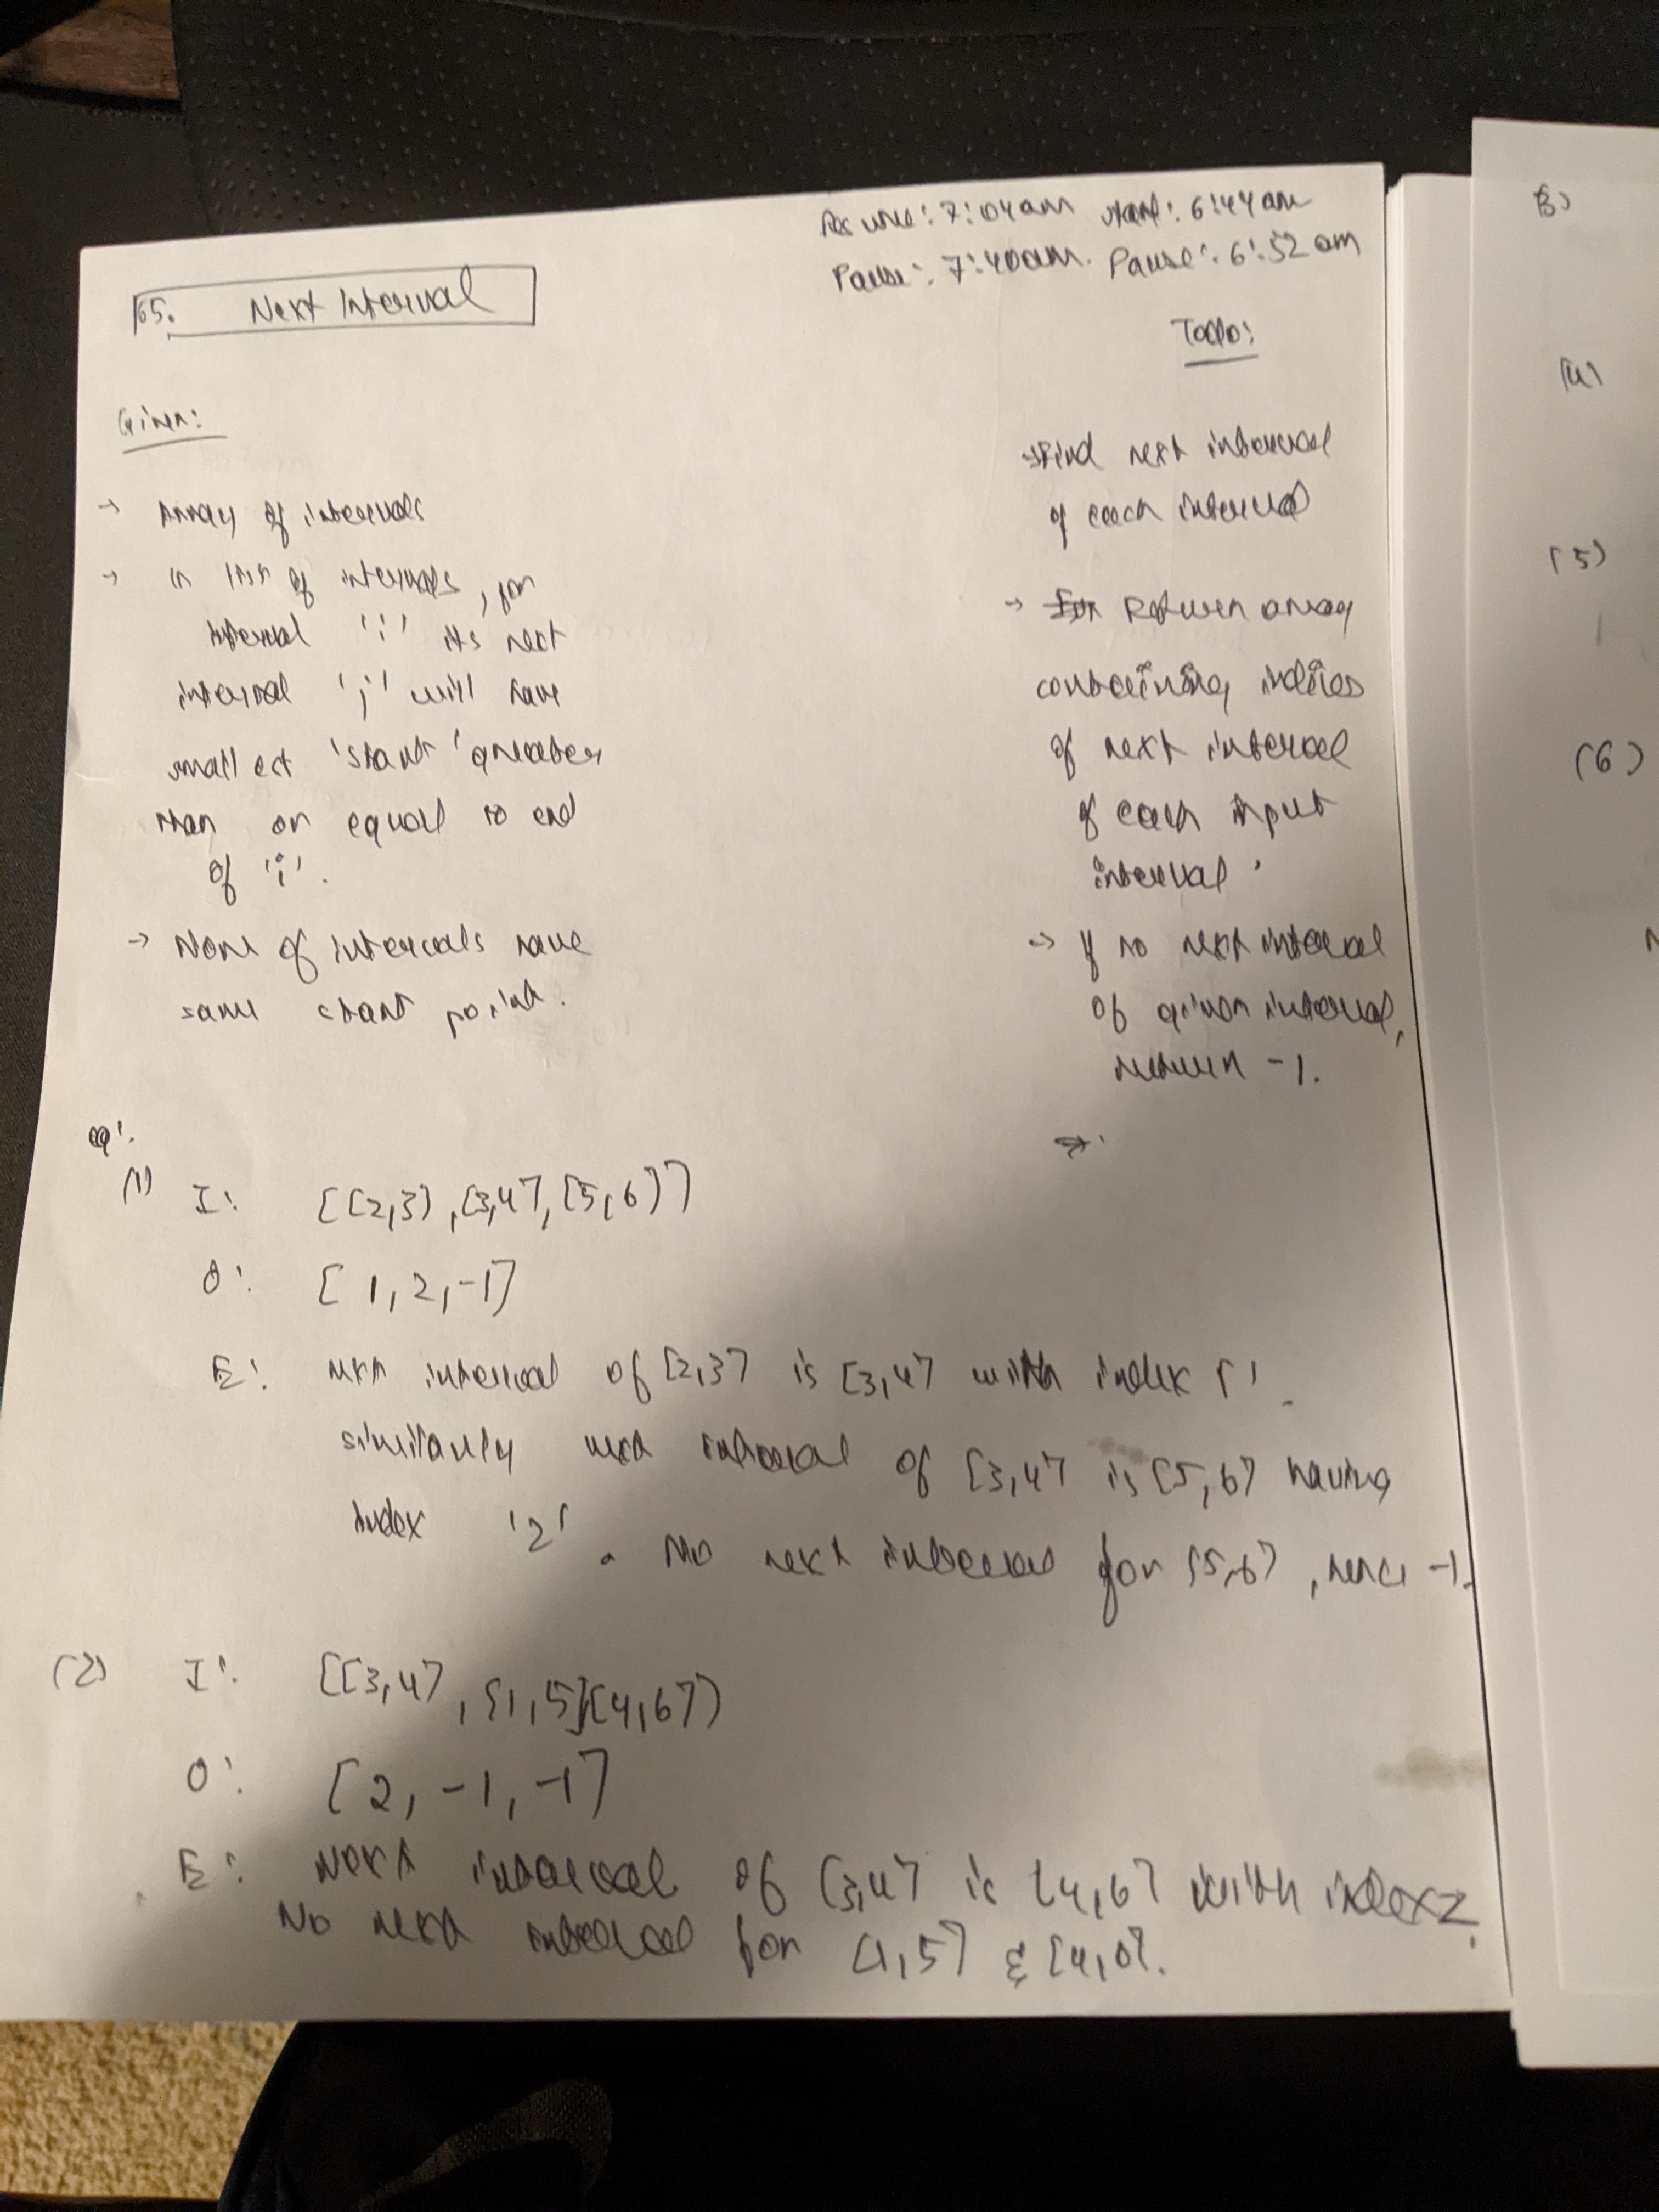 Resume: 7:04am Start: 6:44am
Pause: 7:40am. Pause: 6:52am
165. Next Interval
Todo:
Given:
→ Array of intervals
→ in list of intervals, for
interval 'i' its next
interval 'j' will have
smallest 'start' greater
than or equal to end
of 'i'.
→ None of intervals have
same start point.
→ Find next interval
of each interval
→ For Return array
containing indices
of next interval
of each input
interval.
→ If no next interval
of given interval,
return -1.
→
eg:
(1) I: [[2,3],[3,4],[5,6]]
O: [1,2,-1]
E: next interval of [2,3] is [3,4] with index '1'.
similarly next interval of [3,4] is [5,6] having
index '2'. No next interval for [5,6], hence -1.
(2) I: [[3,4],[1,5],[4,6]]
O: [2,-1,-1]
E: Next interval of [3,4] is [4,6] with index 2.
No next interval for [1,5] & [4,6].
3)
(4)
(5)
(6)